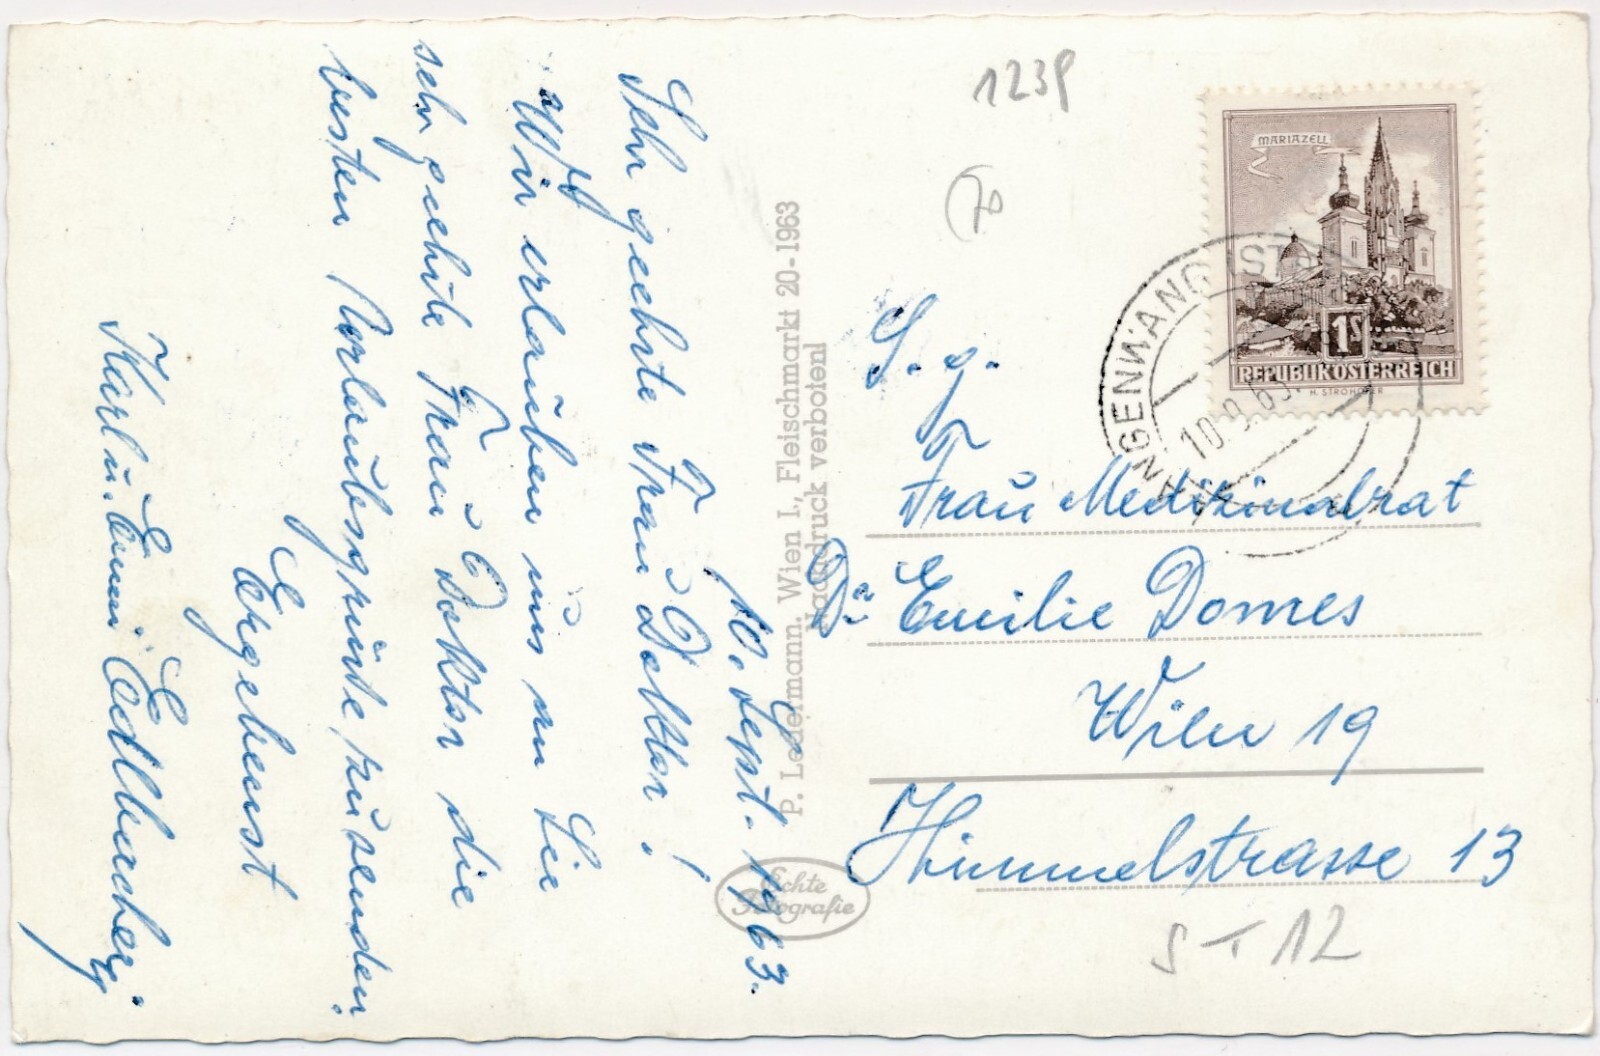 10. Sept. 1963.
Sehr geehrte Frau Doktor!
Wir erlauben uns an Sie
sehr geehrte Frau Doktor die
besten Urlaubsgrüße zu senden.
Ergebenst
Karl u. Emmi Edlbacher
P. Ledermann, Wien I., Fleischmarkt 20-1963
Nachdruck verboten!
Echte
Fotografie
1239
MARIAZELL
1S
REPUBLIK ÖSTERREICH
H. STROHOFER
LANGENWANG
10.9.63
S. g.
Frau Medizinalrat
Dr Emilie Domes
Wien 19
Himmelstrasse 13
S T 12